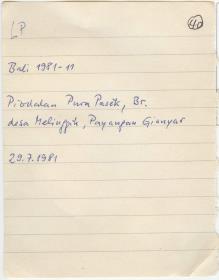 40
LP
Bali 1981-11
Piodalan Pura Pasék, Br.
desa Melinggih, Payangan Gianyar
29.7.1981